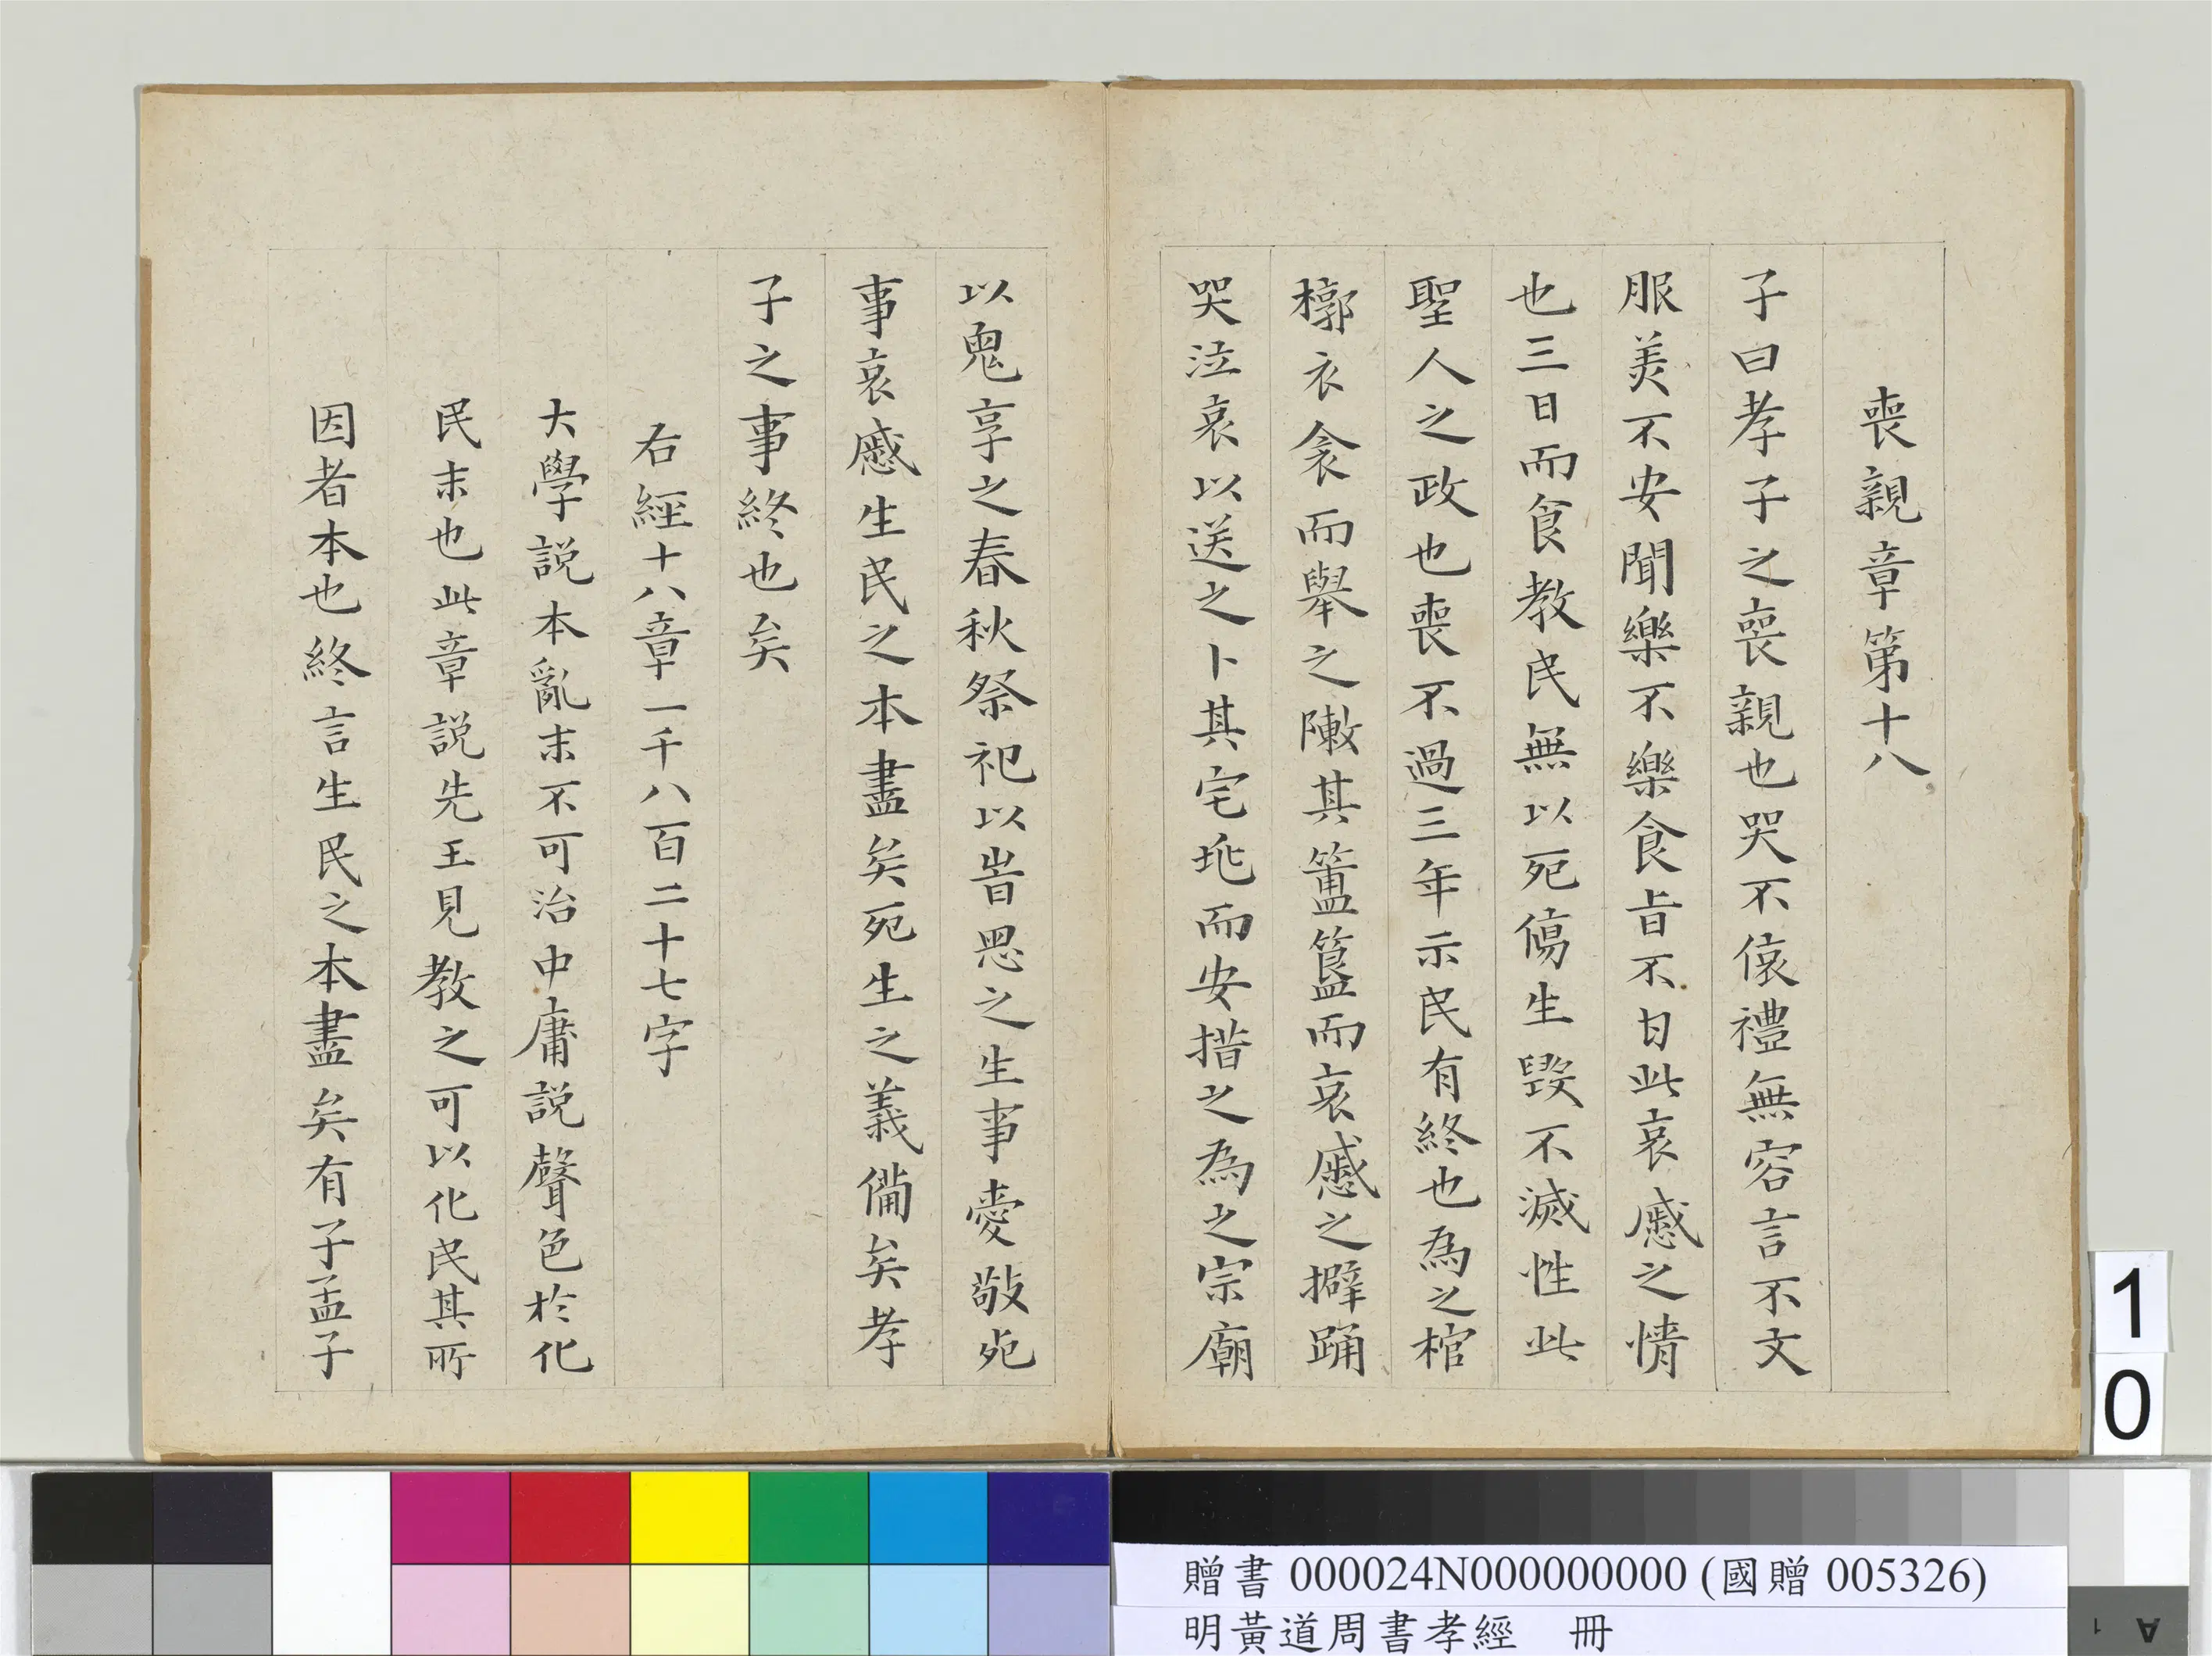 喪親章第十八
子曰孝子之喪親也哭不偯禮無容言不文
服美不安聞樂不樂食旨不甘此哀慼之情
也三日而食教民無以死傷生毀不滅性此
聖人之政也喪不過三年示民有終也為之棺
槨衣衾而舉之陳其簠簋而哀慼之擗踊
哭泣哀以送之卜其宅兆而安措之為之宗廟
以鬼享之春秋祭祀以旹思之生事愛敬死
事哀慼生民之本盡矣死生之義備矣孝
子之事終也矣
右經十八章一千八百二十七字
大學說本亂末不可治中庸說聲色於化
民末也此章說先王見教之可以化民其所
因者本也終言生民之本盡矣有子孟子
10
贈書 000024N000000000 (國贈 005326)
明黃道周書孝經 冊
A 1